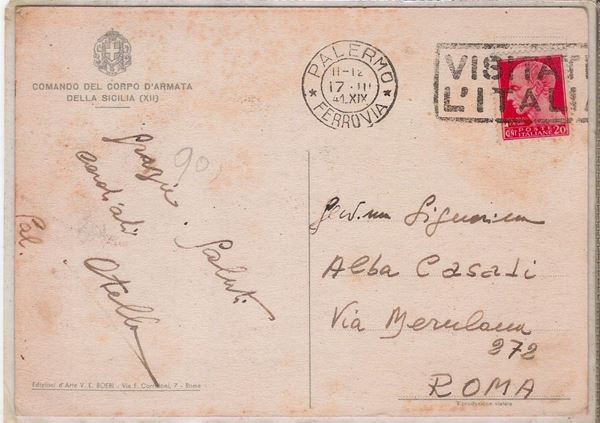 COMANDO DEL CORPO D'ARMATA
DELLA SICILIA (XII)
PALERMO
11-12
17 III
41.XIX
FERROVIA
VISITATE
L'ITALIA
POSTE
ITALIANE
CENT 20
90
Grazie. Saluti
cordiali
Otello
Pal.
Signorina
Alba Casati
Via Merulana
272
ROMA
Edizioni d'Arte V. E. BOERI - Via F. 7 - Roma
Riproduzione vietata